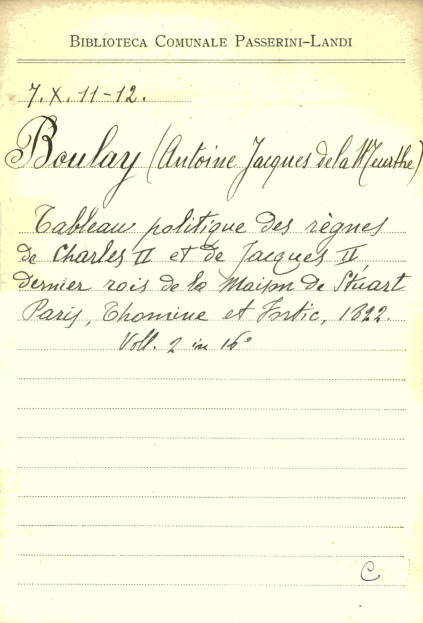 BIBLIOTECA COMUNALE PASSERINI-LANDI
7. X. 11-12.
Boulay (Antoine Jacques de la Meurthe)
Tableau politique des règnes
de Charles II et de Jacques II
dernier rois de la Maison de Stuart
Paris, Thomine et Fortic, 1822.
Voll. 2 in 16°
C